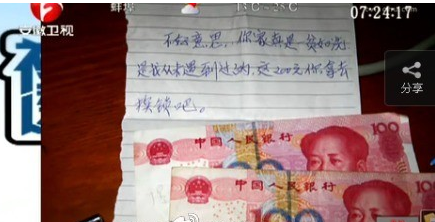 13℃~25℃
07:24:17
安徽卫视
不好意思,你家真是贫如洗
是我从未遇到过的,这200元你拿去
换锁吧。
分享
中国人民银行
100
中国人民银行
100
100